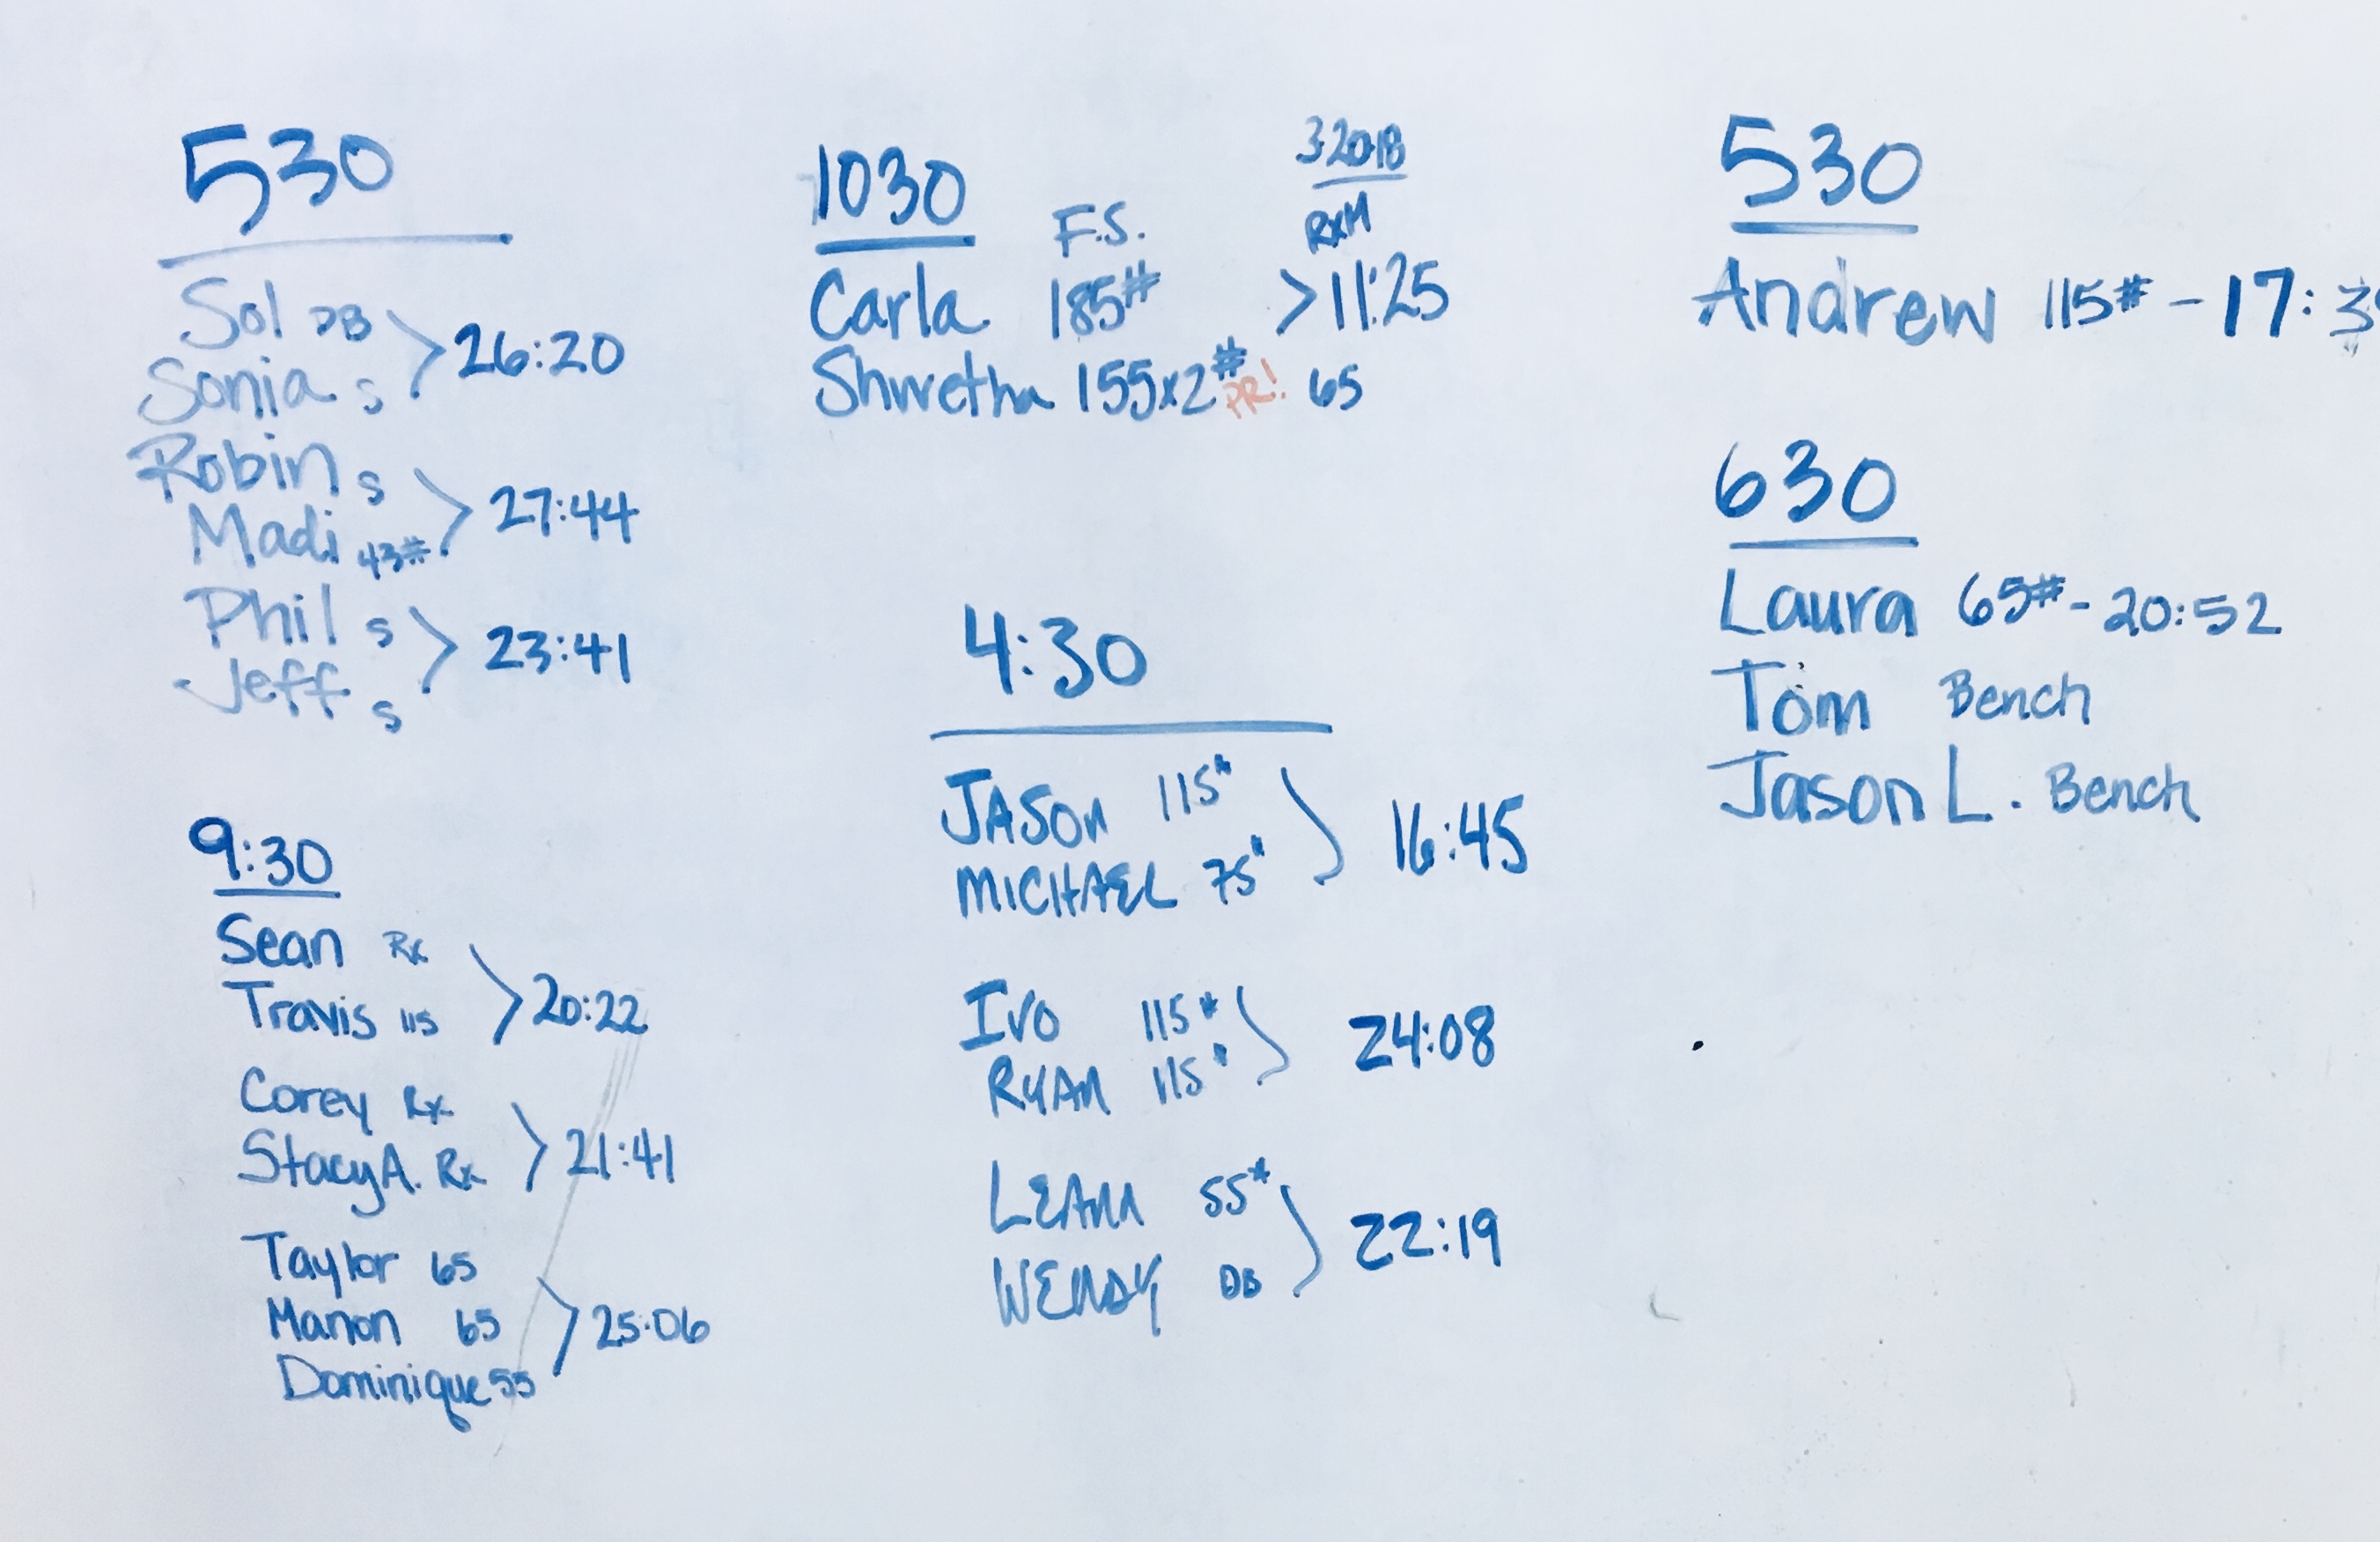 530
Sol DB
Sonia S > 26:20
Robin S
Madi 43# > 27:44
Phil S
Jeff S > 23:41
9:30
Sean Rx
Travis 115 > 20:22
Corey Rx
Stacy A. Rx > 21:41
Taylor 65
Manon 65 > 25:06
Dominique 55
1030 F.S. 3·20·18
RxM
Carla 185# > 11:25
Shwetha 155x2# PR! 65
4:30
JASON 115#
MICHAEL 75# ) 16:45
IVO 115#
RYAN 115# ) 24:08
LEANN 55#
WENDY DB ) 22:19
530
Andrew 115# - 17:3
630
Laura 65# - 20:52
Tom Bench
Jason L. Bench